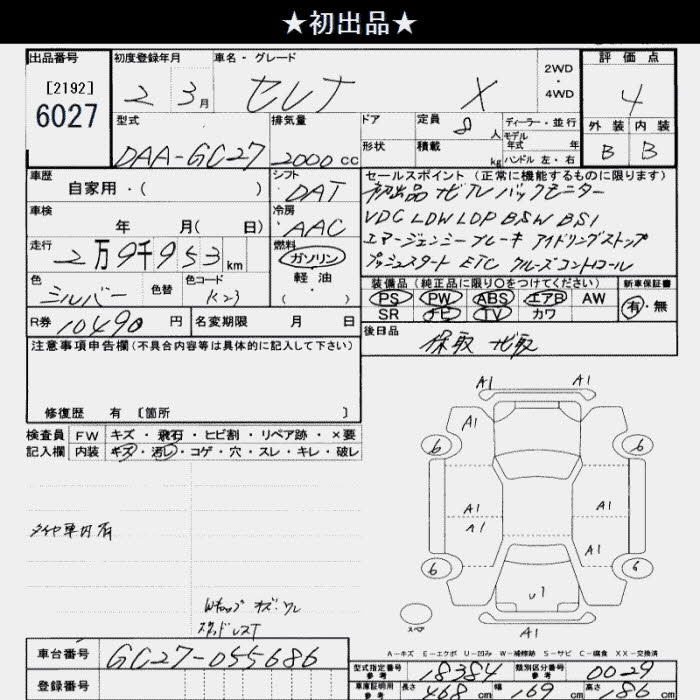 ★初出品★
出品番号
[2192]
6027
初度登録年月
2 3月
車名・グレード
セレナ X
2WD
・
4WD
評価点
4
外装 内装
B B
型式
DAA-GC27
排気量
2000 cc
ドア
形状
定員
8 人
積載
kg
ディーラー・並行
モデル
年式 年
ハンドル 左・右
車歴
自家用・( )
シフト
DAT
車検
年 月( 日)
冷房
AAC
走行
2万9千953 km
燃料
ガソリン
軽油
・( )
色
シルバー
色替
色コード
K23
R券 10490 円
名変期限 月 日
セールスポイント(正常に機能するものに限ります)
初出品 ナビTV バックモニター
VDC LDW LDP BSW BSI
エマージェンシーブレーキ アイドリングストップ
プッシュスタート ETC クルーズコントロール
装備品(純正品に限り○をつけてください)
PS PW ABS エアB AW
SR ナビ TV カワ
新車保証書
有・無
後日品
保取 ナビ取
注意事項申告欄(不具合内容等は具体的に記入して下さい)
修復歴 有 〔箇所 〕
検査員
記入欄
FW キズ・飛石・ヒビ割・リペア跡・×要
内装 キズ・汚レ・コゲ・穴・スレ・キレ・破レ
A1 A1
A1
6 6
A1 A1
A1 A1
6 6
U1
スペア
A1
A-キズ E-エクボ U-凹み W-補修跡 S-サビ C-腐食 XX-交換済
車台番号 GC27-055686
登録番号
型式指定番号
参考
18384
類別区分番号
参考
0029
車庫証明用
参考
長さ 468 cm 幅 169 cm 高さ 186 cm